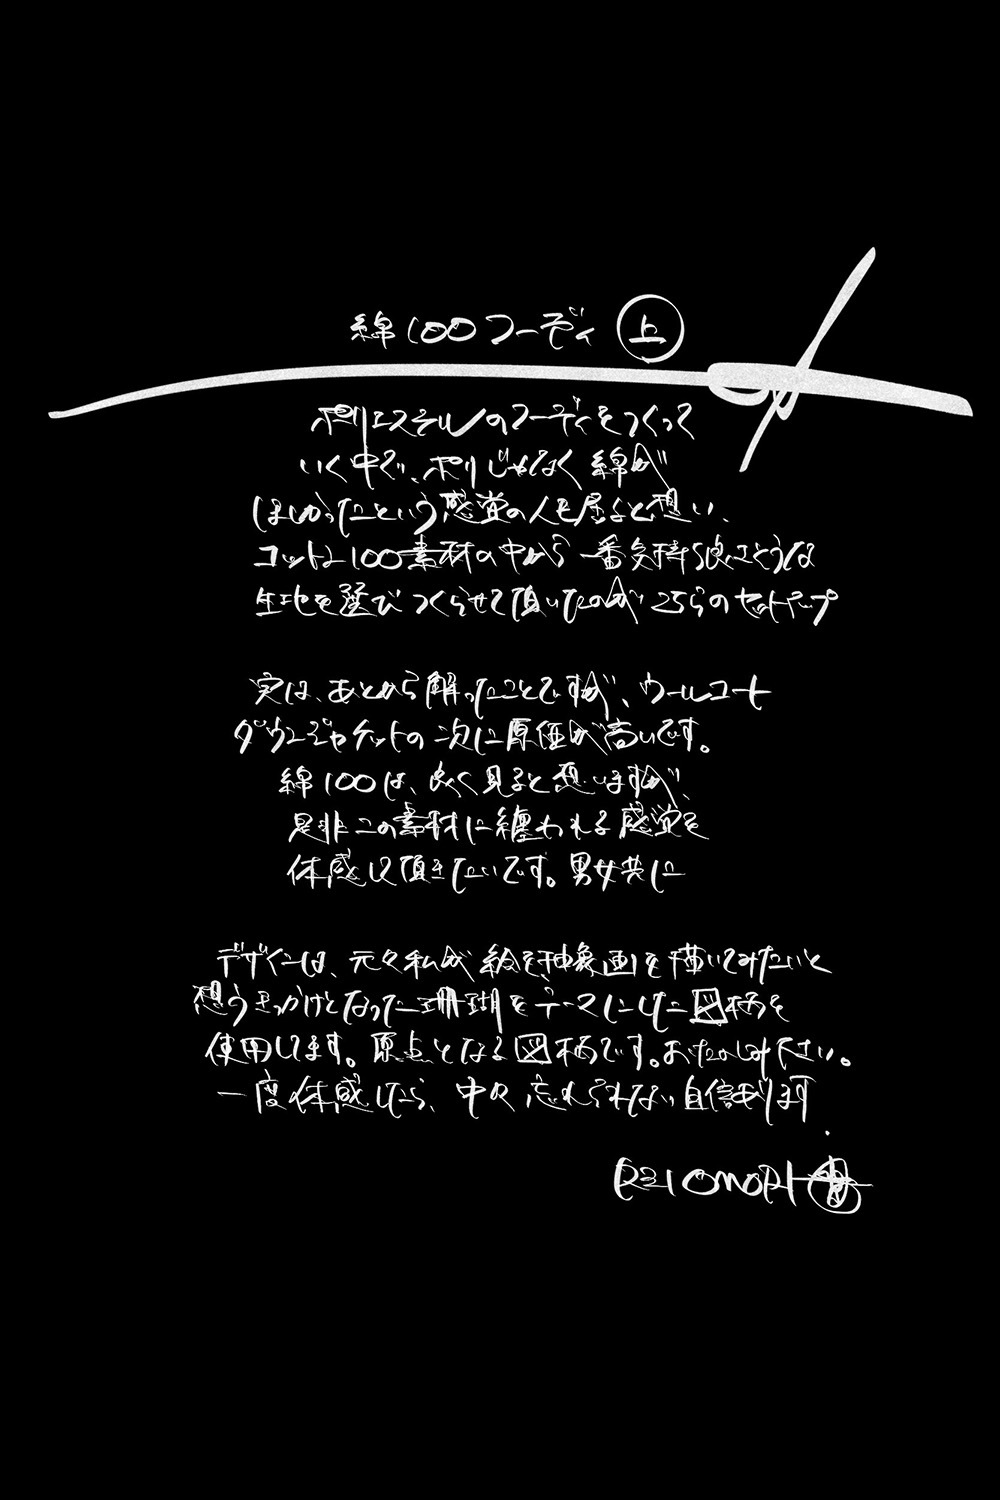 綿100フーディ 上
ポリエステルのフーディをつくって
いく中で、ポリじゃなく綿が
ほしかったという感覚の人も居ると想い、
コットン100素材の中から一番気持ち良さそうな
生地を選びつくらせて頂いたのがこちらのセットアップ
実は、あとから解ったことですが、ウールコート
ダウンジャケットの次に原価が高いです。
綿100は、良く見ると思いますが、
是非この素材に纏われる感覚を
体感して頂きたいです。男女共に
デザインは、元々私が絵を抽象画を描いてみたいと
想うきっかけとなった珊瑚をテーマにした図柄を
使用してます。原点となる図柄です。おたのしみ下さい。
一度体感したら、中々忘れられない自信あります.
REIOMORI